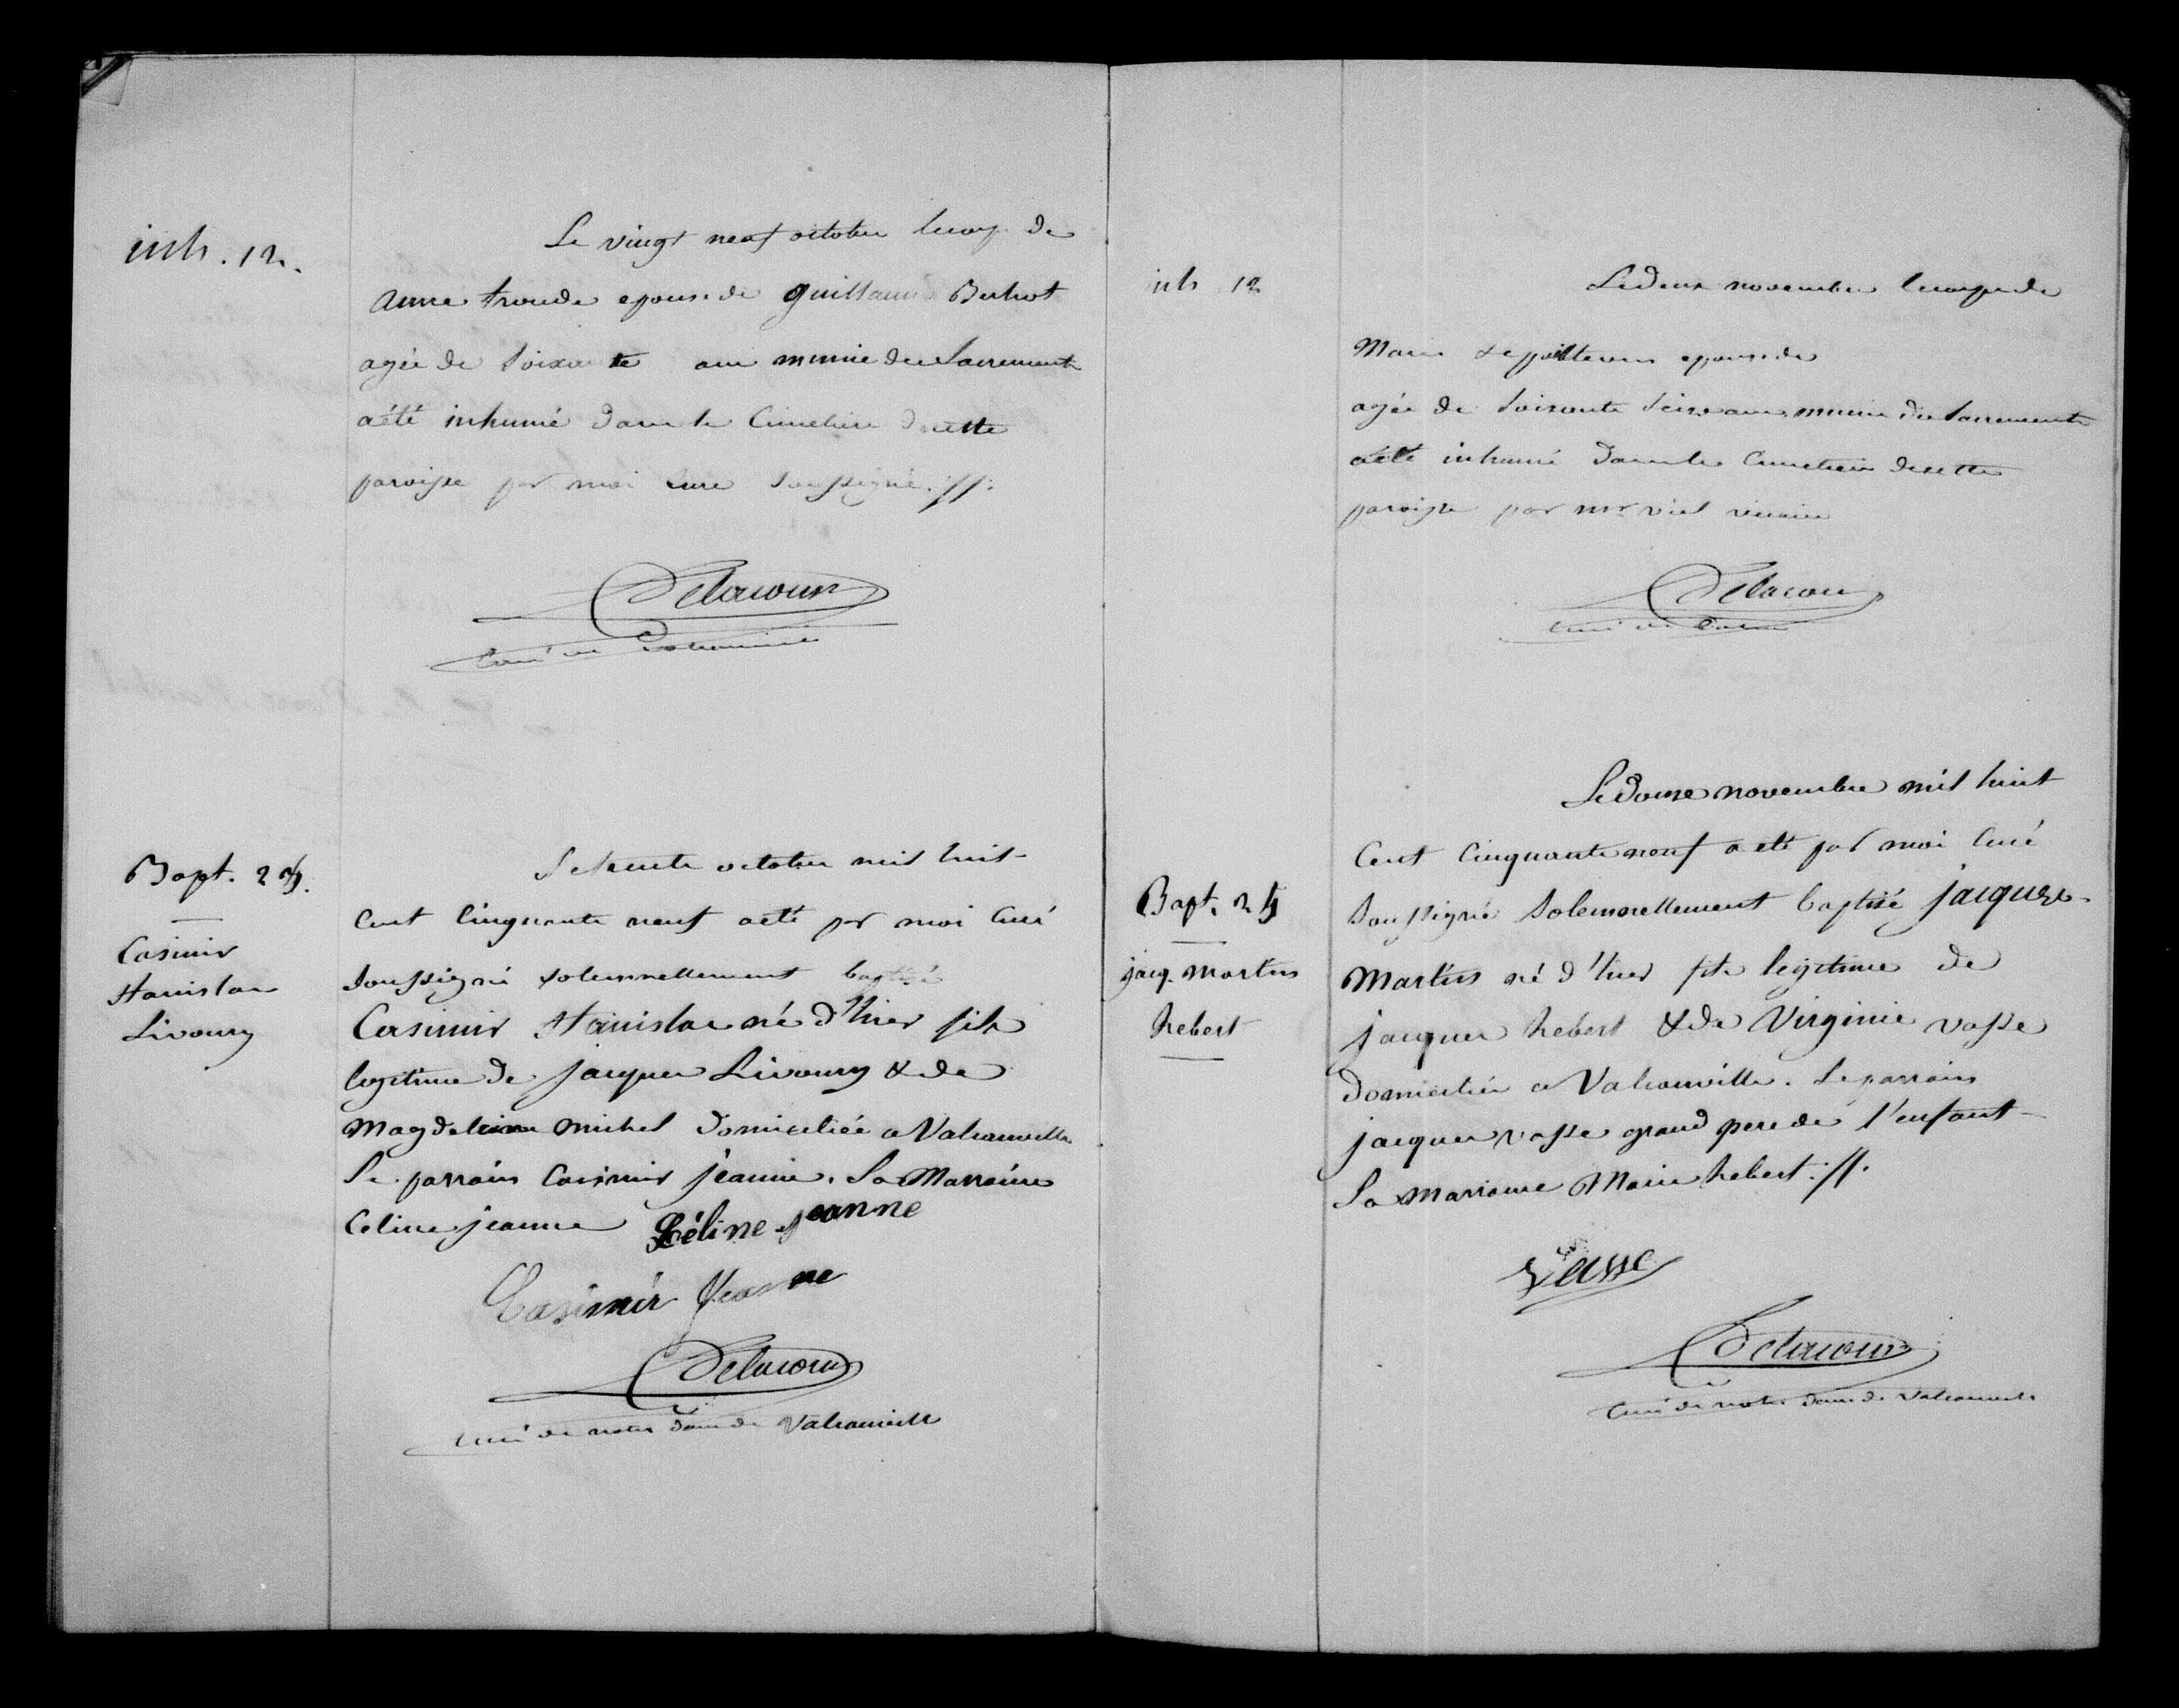 inh. 12.
Le vingt neuf octobre le corps de
anne troude epouse de guillaume Berhot
agée de soixante ans munie des Sacrements
a été inhumé dans le Cimetiere de cette
paroisse par moi curé soussigné.//.
Delacour
Curé de
Bapt. 24.
Casimir
Stanislas
Livoury
Le trente octobre mil huit
Cent Cinquante neuf a eté par moi Curé
soussigné solennellement baptisé
Casimir Stanislas né d'hier fils
legitime de jacques Livoury & de
Magdeleine michel domiciliés a Valcanville
Le parrain Casimir jeanne. La Marraine
Celine jeanne Céline Jeanne
Casimir Jeanne
Delacour
Curé de notre dame de Valcanville
inh 12
Le deux novembre le corps de
Marie epouse de
agée de soixante seize ans munie des Sacrements
a été inhumé dans le Cimetiere de cette
paroisse par mr. viel vicaire
Delacour
Curé de
Le douze novembre mil huit
Cent Cinquante neuf a eté par moi Curé
soussigné solennellement baptisé jacques
Bapt. 25
jacq. martin
hebert
Martin né d'hier fils legitime de
jacques hebert & de Virginie vasse
domiciliés a Valcanville. Le parrain
jacques vasse grand pere de l'enfant
La marraine Marie hebert.//.
Vasse
Delacour
Curé de notre dame de Valcanville